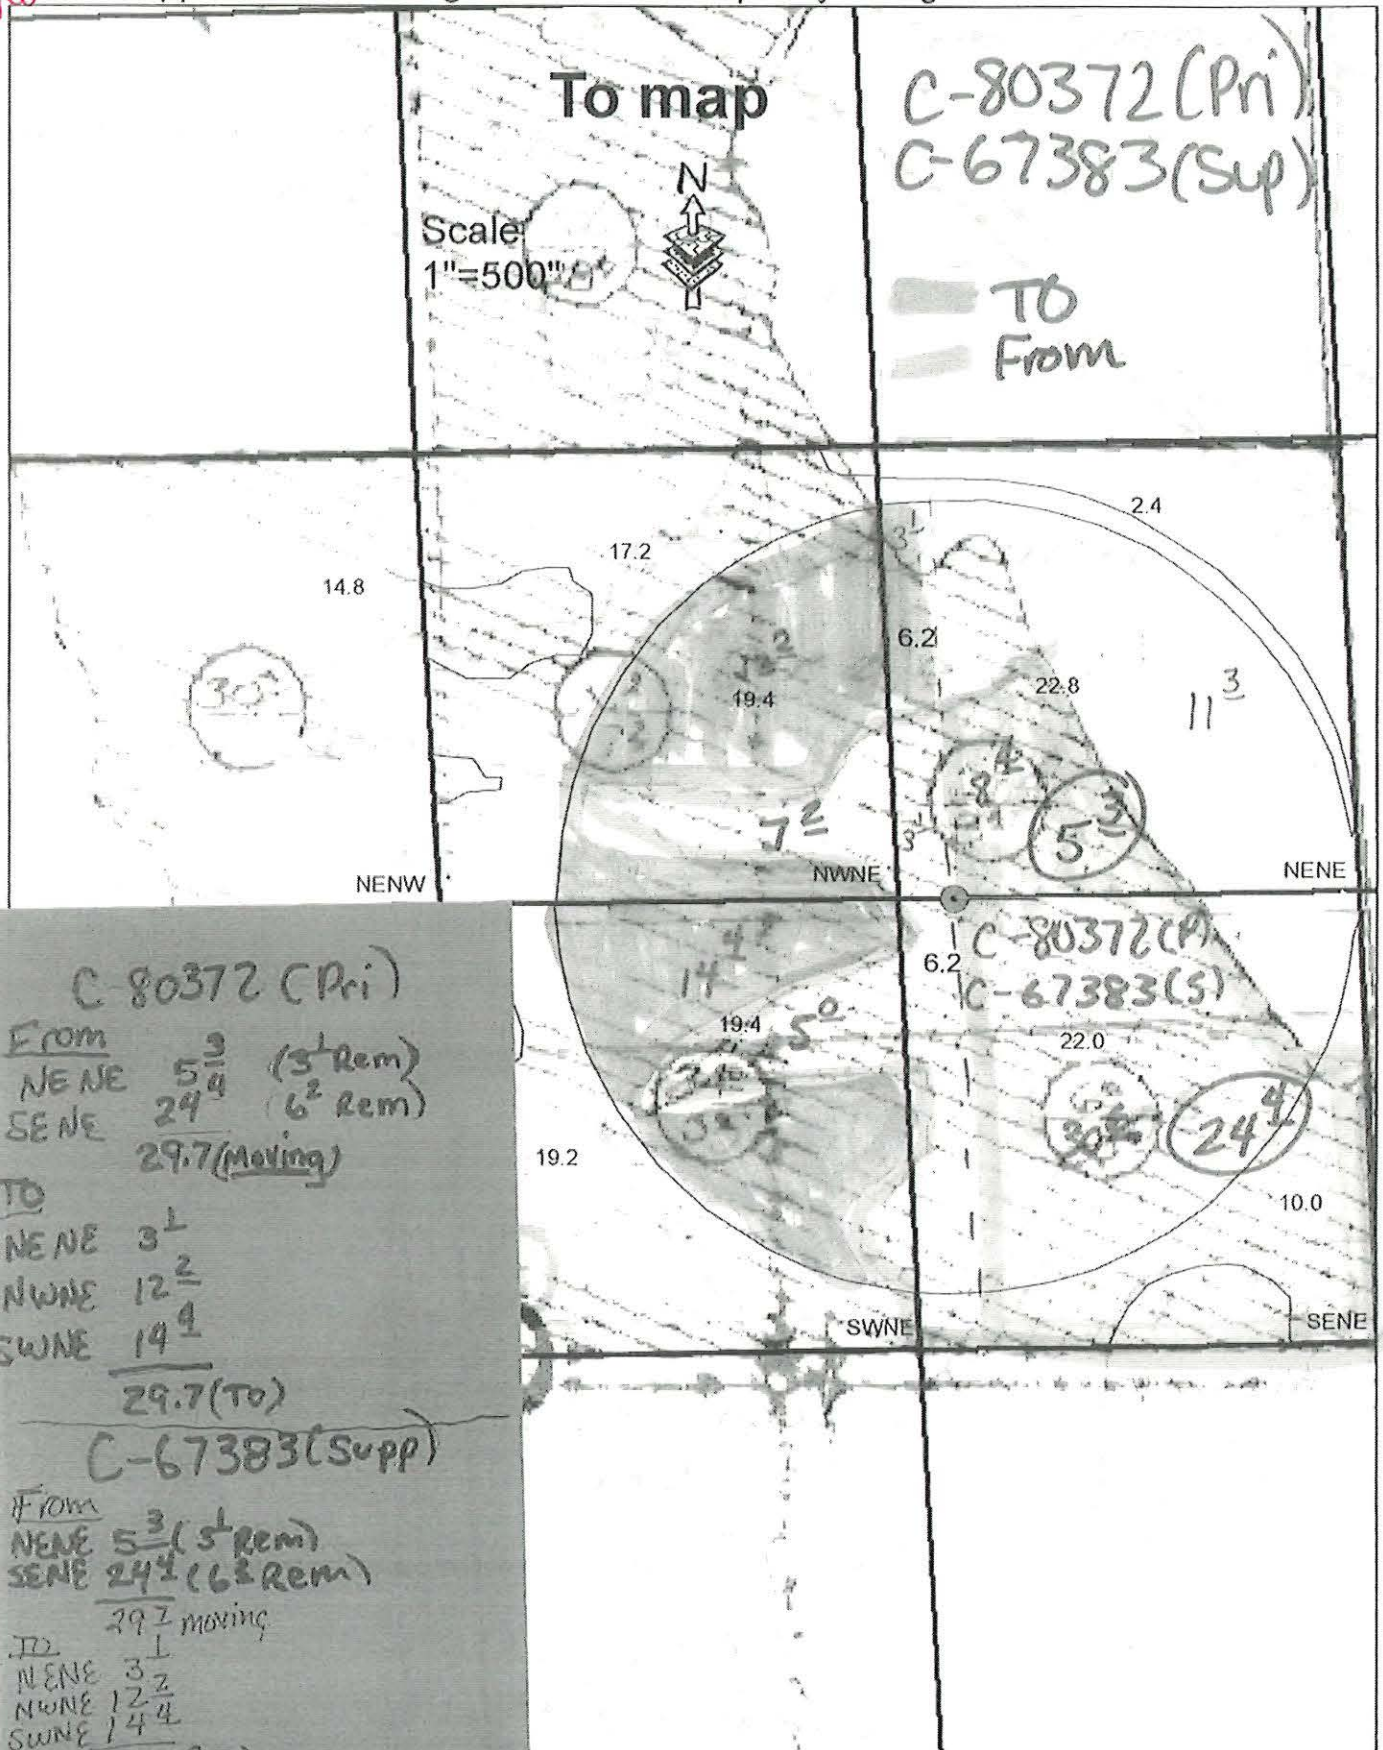 To map
N
Scale
1"=500"
C-80372 (Pri)
C-67383 (Sup)
TO
From
2.4
17.2
14.8
3¹
6.2
19.4
22.8
11³
30²
8⁴
5³
7²
3¹
NENW
NWNE
NENE
C-80372 (P)
C-67383 (S)
6.2
14⁴
19.4
5⁰
22.0
24⁴
19.2
10.0
SWNE
SENE
C-80372 (Pri)
From
NENE 5³ (3¹ Rem)
SENE 24⁴ (6² Rem)
29.7 (Moving)
TO
NENE 3¹
NWNE 12²
SWNE 14⁴
29.7 (TO)
C-67383 (Supp)
From
NENE 5³ (3¹ Rem)
SENE 24⁴ (6² Rem)
29⁷ moving
TO
NENE 3¹
NWNE 12²
SWNE 14⁴